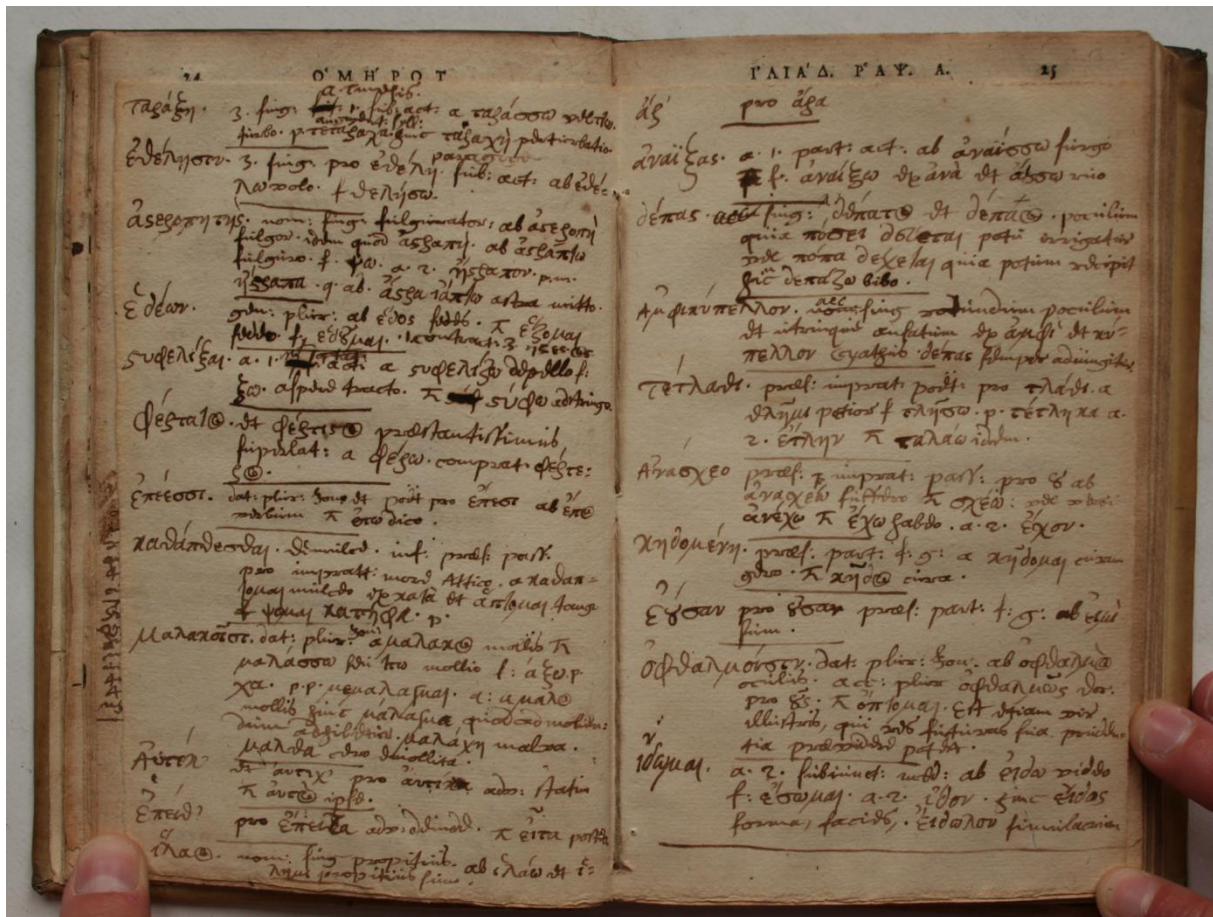 24 ὉΜΗΡΟΥ
ταράξῃ. 3. sing: 1. sub: act: a ταράσσω vel ττω.
turbo. p. τετάραχα. hinc ταραχὴ perturbatio
ἐθέλῃσιν. 3. sing. pro ἐθέλῃ sub: act: ab ἐθέ-
λω volo. f θελήσω.
ἀστεροπητής. nom: sing: fulgurator: ab ἀστεροπὴ
fulgor. idem quod ἀστραπή. ab ἀστράπτω
fulguro. f. ψω. a. 2. ἤστραπον. p.m.
ἤστραπα. q. ab. ἄστρα ἰάπτω astra mitto.
ἑδέων. gen: plur: ab ἕδος sedes. ἕζομαι
sedeo. f.
στυφελίξαι. a. 1. act: a στυφελίζω depello f:
ξω. aspere tracto. στύφω adstringo.
φέρτατος. et φέριστος præstantissimus,
superlat: a φέρω. comparat: φέρτε-
ρος.
ἐπέεσσι. dat: plur: Ion: et poët: pro ἔπεσι ab ἔπος
verbum ἔπω dico.
καθάπτεσθαι. demulce. inf: præs: pass.
pro imperat: more Attico. a καθάπ-
τομαι mulceo ex κατὰ et ἅπτομαι tango
f ψομαι p.
μαλακοῖσι. dat: plur: Ion: a μαλακὸς mollis
μαλάσσω seu ττω mollio f: άξω. p.
χα. p.p. μεμάλαγμαι.
mollis hinc μάλαγμα quod ad mollien:
dum adhibetur. μαλάχη malva.
μάλθα cera emollita.
αὐτίκ' et αὐτίχ' pro αὐτίκα adv: statim
αὐτὸς ipse.
ἔπειτ' pro ἔπειτα adv: deinde. εἶτα postea
ἵλαος. nom: sing propitius. ab ἱλάω et ἵ-
λημι propitius sum.
ἸΛΙΆΔ. ῬΑΨ. Α. 25
ἄρ' pro ἄρα
ἀναΐξας. a. 1. part: act: ab ἀναΐσσω surgo
f. ἀναΐξω ex ἀνὰ et ἀΐσσω ruo
δέπας. acc sing: δέπατος et δέπαος. poculum
quia πόσει δεύεται potu irrigatur
vel ποπα δέχεται quia potum recipit
hinc δεπάζω bibo.
ἀμφικύπελλον. acc sing rotundum poculum
et utrinque ansatum ex ἀμφὶ et κύ-
πελλον cyathus. δέπας semper adiungitur
τέτλαθι. præs: imperat: poët: pro τλάθι. a
τλῆμι patior f τλήσω. p. τέτληκα a.
2. ἔτλην ταλάω idem.
ἀνάσχεο præs: imperat: pass: pro ου ab
ἀνασχέω suffero σχέω: vel
ἀνέχω ἔχω habeo. a. 2. ἔσχον.
κηδομένη. præs: part: f: g: a κήδομαι curam
gero. κῆδος cura.
ἐοῦσαν pro οὖσαν præs: part: f: g: ab εἰμὶ
sum.
ὀφθαλμοῖσιν. dat: plur: Ion: ab ὀφθαλμὸς
oculus. acc: plur ὀφθαλμὼς dor:
pro οὺς. ὄπτομαι. est etiam vir
illustris, qui res futuras sua pruden-
tia prævidere potest.
ἴδωμαι. a. 2. subiunct: med: ab εἴδω video
f: εἴσωμαι. a. 2. ἴδον. hinc εἶδος
forma, facies, εἴδωλον simulacrum